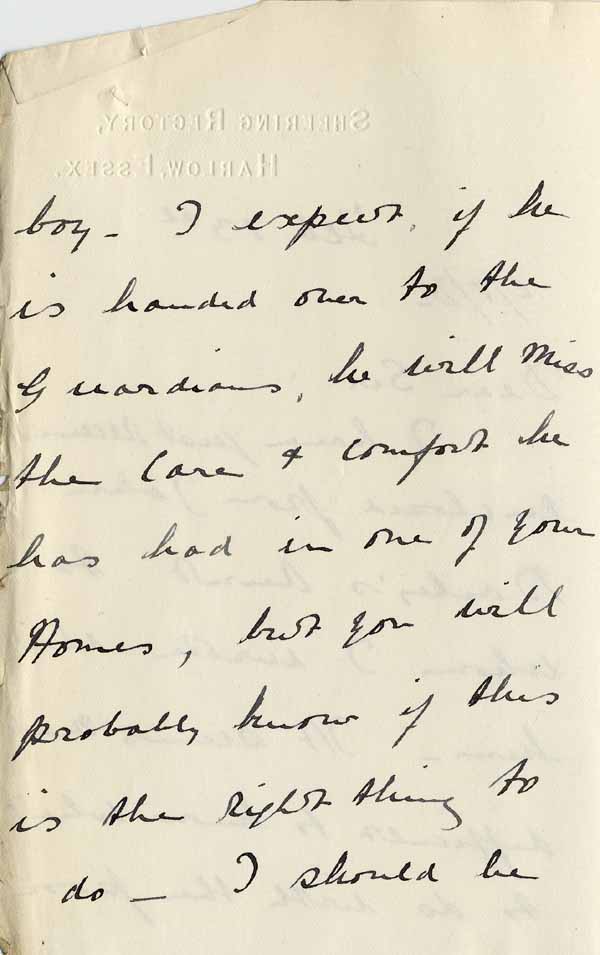 SHEERING RECTORY,
HARLOW, ESSEX.
boy – I expect, if he
is handed over to the
Guardians, he will miss
the care & comfort he
has had in one of your
Homes, but you will
probably know if this
is the right thing to
do – I should be